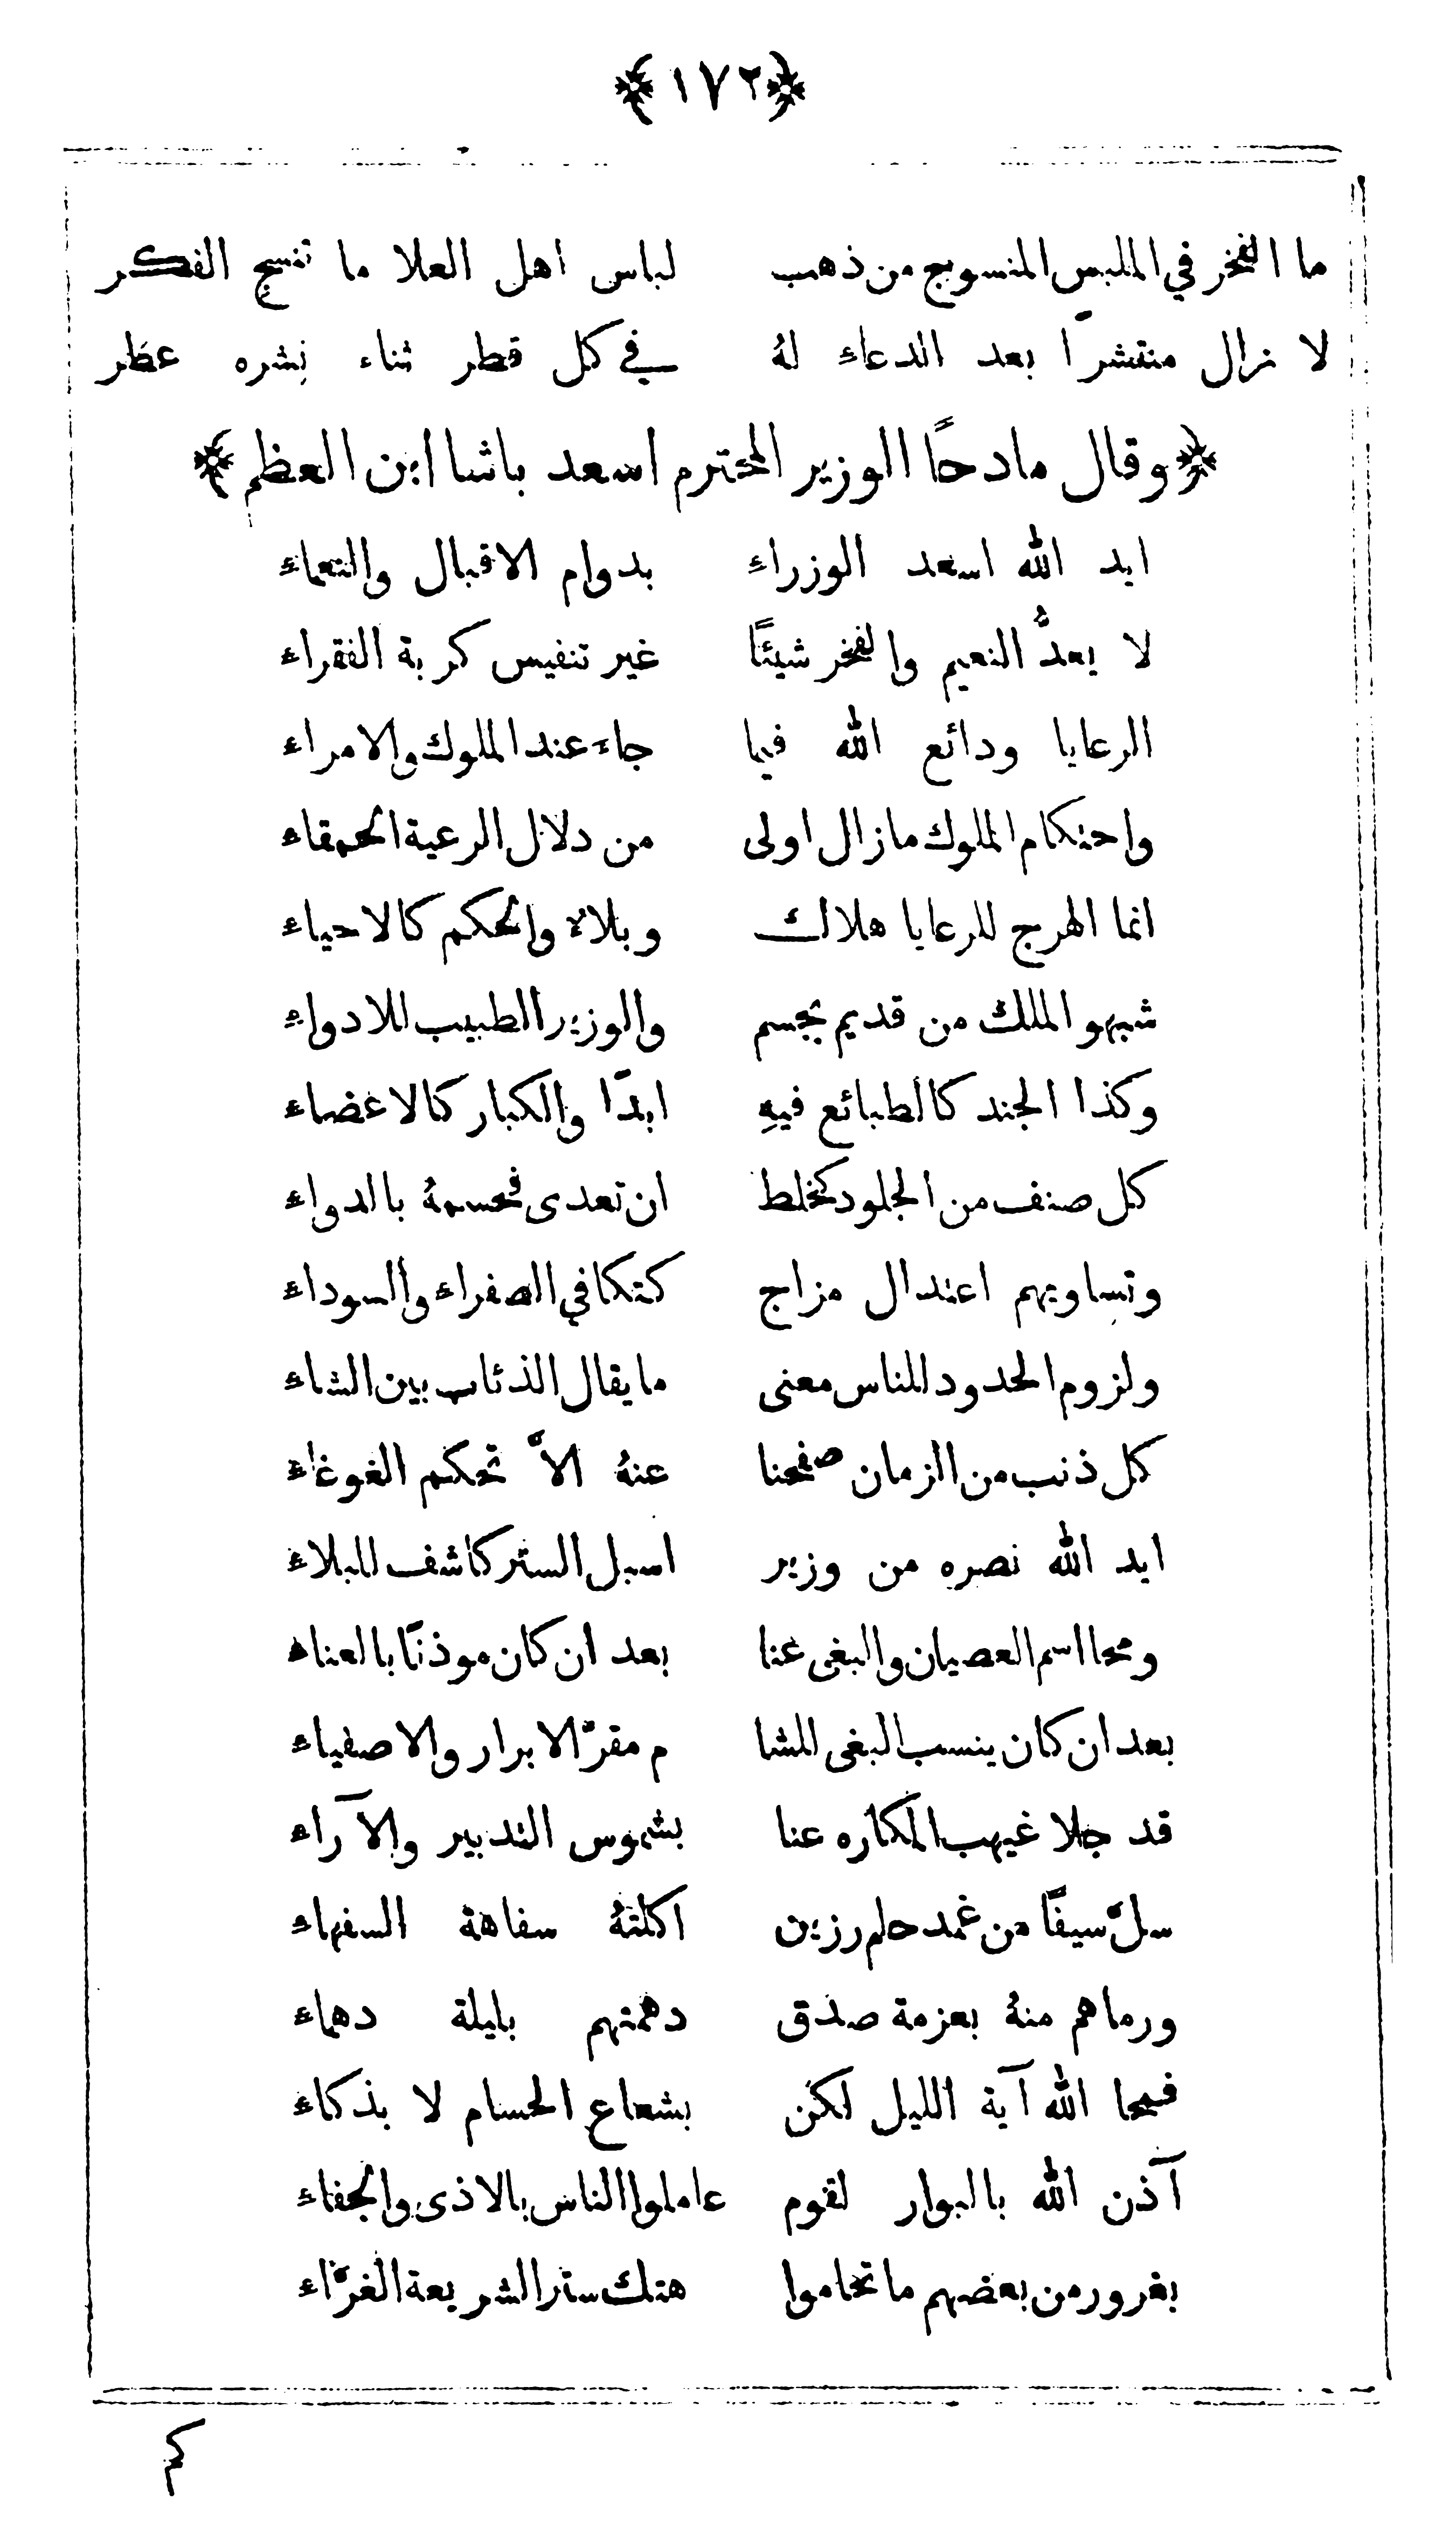 ﴿١٧٢﴾
ما الفخر في الملبس المنسوج من ذهب لباس اهل العلا ما تنسج الفكر
لا نزال منتشرًا بعد الدعاء لهُ في كل قطر ثناء نشره عطر
﴿وقال مادحًا الوزير المحترم اسعد باشا ابن العظم﴾
ايد الله اسعد الوزراء بدوام الاقبال والنعماء
لا يعدُّ النعيم والفخر شيئًا غير تنفيس كربة الفقراء
الرعايا ودائع الله فيما جاء عند الملوك والامراء
واحتكام الملوك ما زال اولى من دلال الرعية الحمقاء
انما الهرج للرعايا هلاك وبلاء والحكم كالاحياء
شبهو الملك من قديم بجسم والوزير الطبيب للادواء
وكذا الجند كالطبائع فيهِ ابدًا والكبار كالاعضاء
كل صنف من الجلود كخلط ان تعدى فحسمهُ بالدواء
وتساويهم اعتدال مزاج كتكافي الصفراء والسوداء
ولزوم الحدود للناس معنى ما يقال الذئاب بين الشاء
كل ذنب من الزمان صفحنا عنهُ الاَّ تحكم الغوغاء
ايد الله نصره من وزير اسبل الستر كاشف للبلاء
ومحا اسم العصيان والبغى عنا بعد ان كان موذنًا بالعناء
بعد ان كان ينسب البغى للشا م مقرّ الابرار والاصفياء
قد جلا غيهب المكاره عنا بشموس التدبير والآراء
سلَّ سيفًا من غمد حلم رزين اكلتهُ سفاهة السفهاء
ورماهم منهُ بعزمة صدق دهمتهم بليلة دهماء
فمحا الله آية الليل لكن بشعاع الحسام لا بذكاء
آذن الله بالبوار لقوم عاملوا الناس بالاذى والجفاء
بغرور من بعضهم ما تحاموا هتك ستر الشريعة الغرّاء
كم